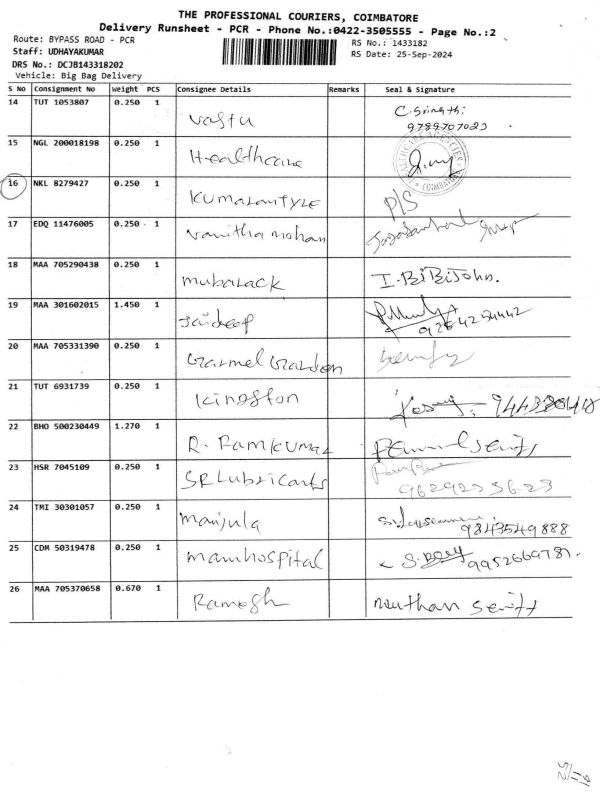 THE PROFESSIONAL COURIERS, COIMBATORE
Delivery Runsheet - PCR - Phone No.:0422-3505555 - Page No.:2
Route: BYPASS ROAD - PCR
RS No.: 1433182
Staff: UDHAYAKUMAR
RS Date: 25-Sep-2024
DRS No.: DCJB143318202
Vehicle: Big Bag Delivery
S No Consignment No Weight PCS Consignee Details Remarks Seal & Signature
14 TUT 1053807 0.250 1 Vastu
9789707023
15 NGL 200018198 0.250 1 Healthcare
COIMBATORE
16 NKL 8279427 0.250 1 KUMARANTYRE P/S
17 EDQ 11476005 0.250 1 Vanitha mohan
18 MAA 705290438 0.250 1 mubarack I. BiBiJohn.
19 MAA 301602015 1.450 1 Jaideep
20 MAA 705331390 0.250 1 Garmel Garden
21 TUT 6931739 0.250 1 Kingston
22 BHO 500230449 1.270 1 R. Ramkumar
23 HSR 7045109 0.250 1 SR Lubricants
24 TMI 30301057 0.250 1 Manjula 9843549888
25 CDM 50319478 0.250 1 mamhospital 9952669781
26 MAA 705370658 0.670 1 Ramesh